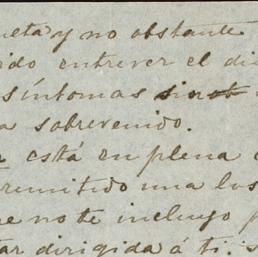 ueta y no obstante
ido entrever el di
síntomas
a sobrevenido.
está en plena
remitido una
e no te incluyo p
tar dirigida á ti. S